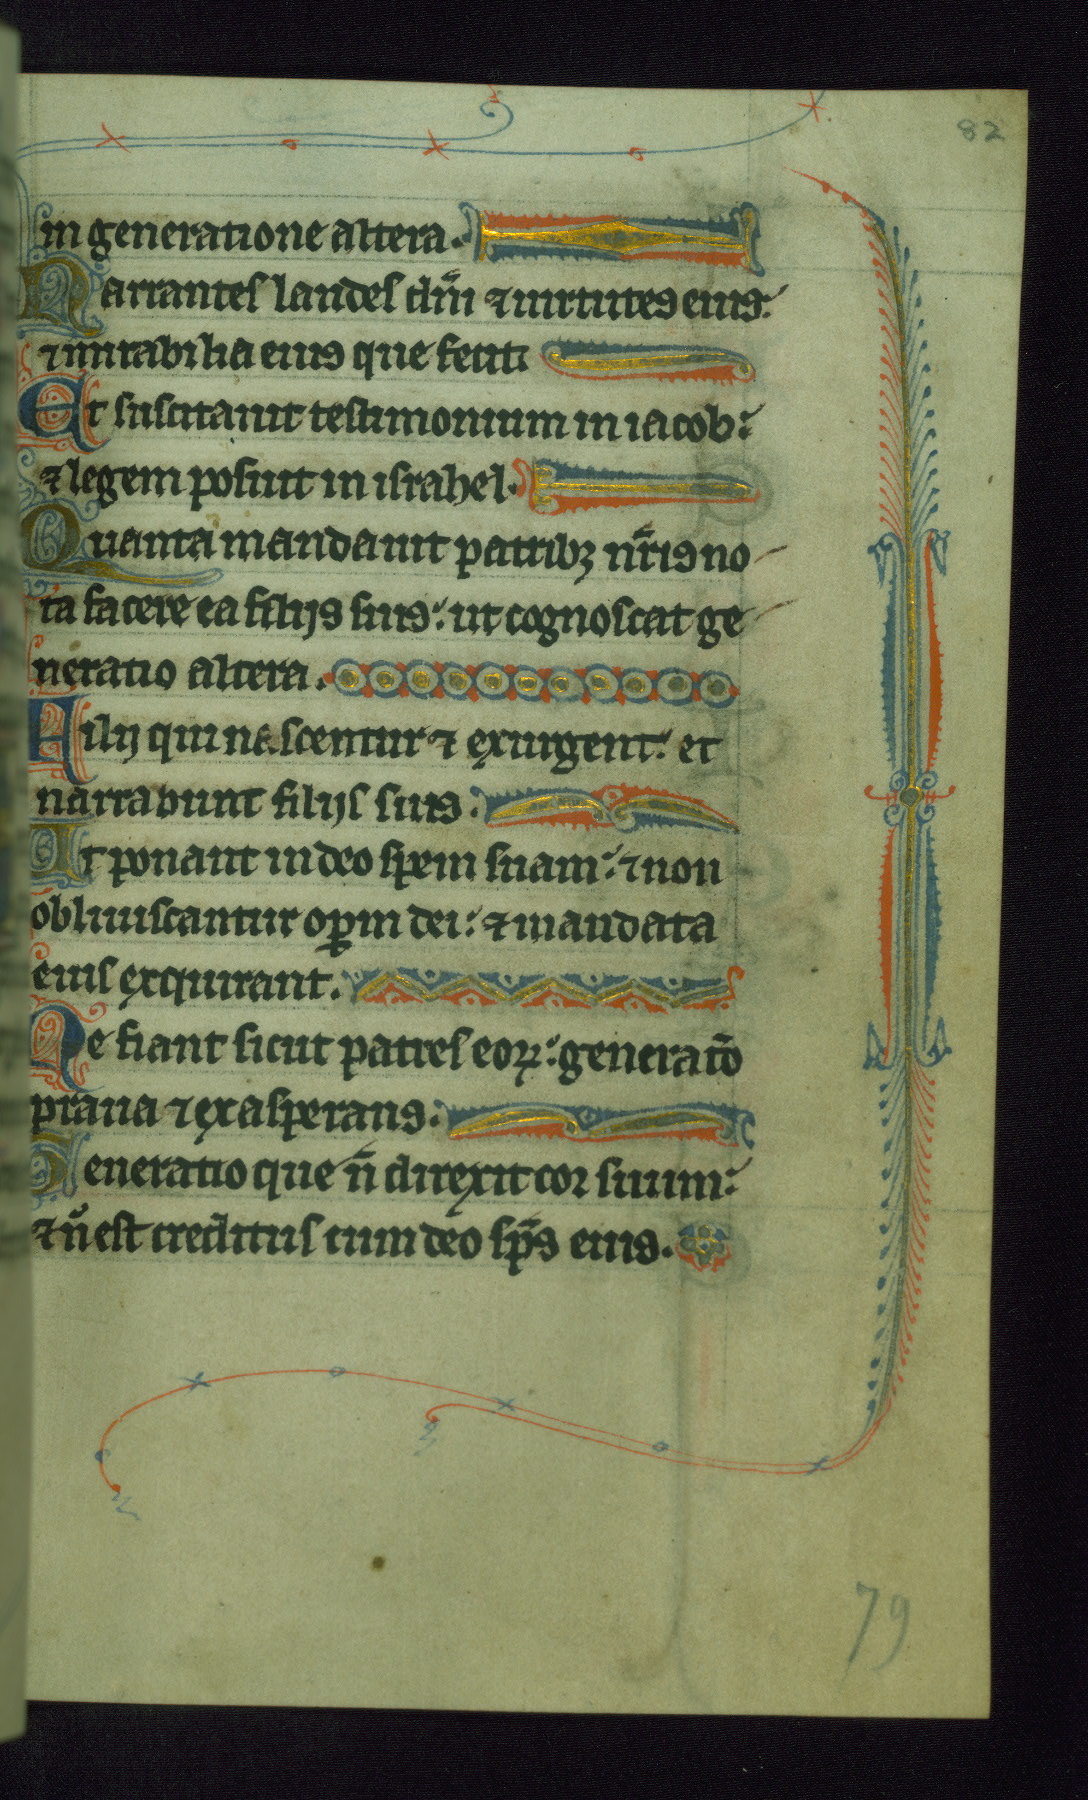 82
in generatione altera.
Narrantes laudes dñi ⁊ uirtutes eius:
⁊ mirabilia eius que fecit.
Et suscitauit testimonium in iacob:
⁊ legem posuit in israhel.
Quanta mandauit patribꝫ nr̃is no
ta facere ea filijs suis: ut cognoscat ge
neratio altera.
Filij qui nascentur ⁊ exurgent: et
narrabunt filijs suis.
Ut ponant in deo spem suam: ⁊ non
obliuiscantur oꝑum dei: ⁊ mandata
eius exquirant.
Ne fiant sicut patres eoꝝ: generatõ
praua ⁊ exasperans.
Generatio que ñ direxit cor suum:
⁊ ñ est creditus cum deo sp̃s eius.
79